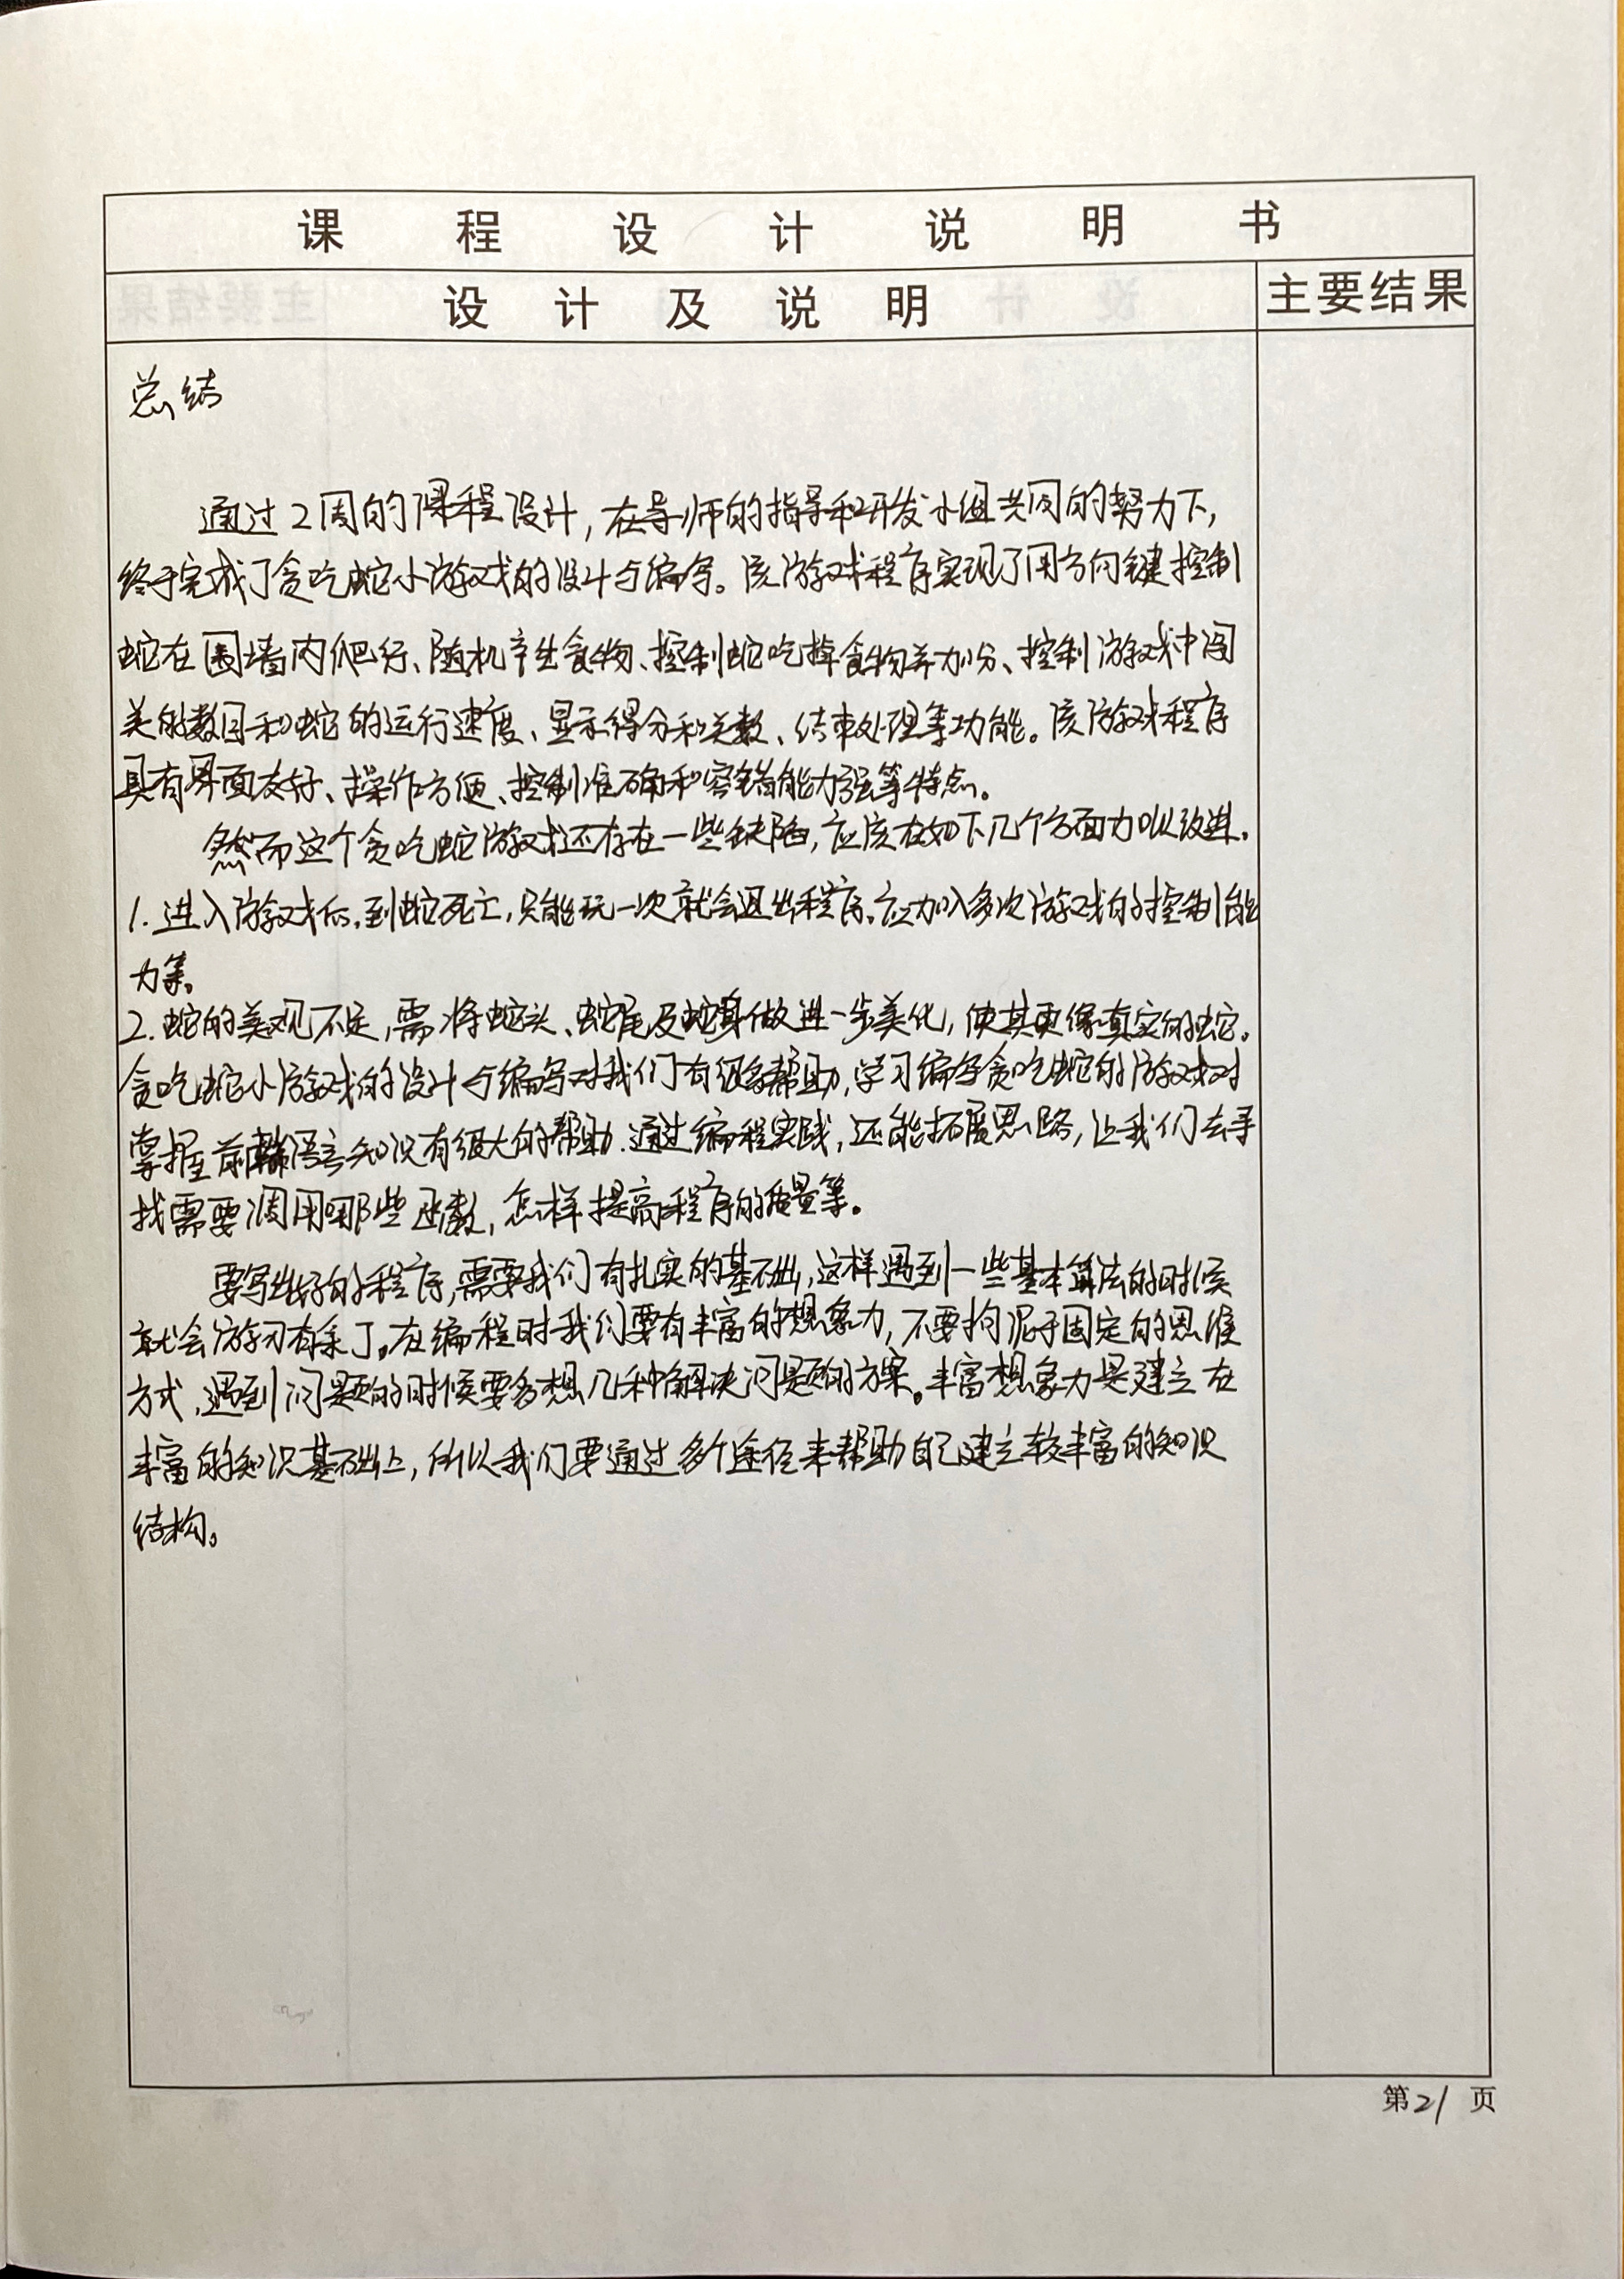 课程设计说明书
设计及说明
主要结果
总结
通过2周的课程设计，在导师的指导和研发小组共同的努力下，
终于完成了贪吃蛇小游戏的设计与编写。该游戏程序实现了用方向键控制
蛇在围墙内爬行、随机产生食物、控制蛇吃掉食物并加分、控制游戏中闯
关的数目和蛇的运行速度、显示得分和关数、结束处理等功能。该游戏程序
具有界面友好、操作方便、控制准确和容错能力强等特点。
然而这个贪吃蛇游戏还存在一些缺陷，应该在如下几个方面加以改进.
1.进入游戏后，到蛇死亡，只能玩一次就会退出程序。应加入多次游戏的控制能
力等。
2.蛇的美观不足，需将蛇头、蛇尾及蛇身做进一步美化，使其更像真实的蛇。
贪吃蛇小游戏的设计与编写对我们有很多帮助，学习编写贪吃蛇的游戏对
掌握前端语言知识有很大的帮助.通过编程实践，还能拓展思路，让我们去寻
找需要调用哪些函数，怎样提高程序的质量等。
要写出好的程序，需要我们有扎实的基础，这样遇到一些基本算法的时候
就会游刃有余了。在编程时我们要有丰富的想象力，不要拘泥于固定的思维
方式，遇到问题的时候要多想几种解决问题的方案。丰富想象力是建立在
丰富的知识基础上，所以我们要通过多个途径来帮助自己建立较丰富的知识
结构。
第21页